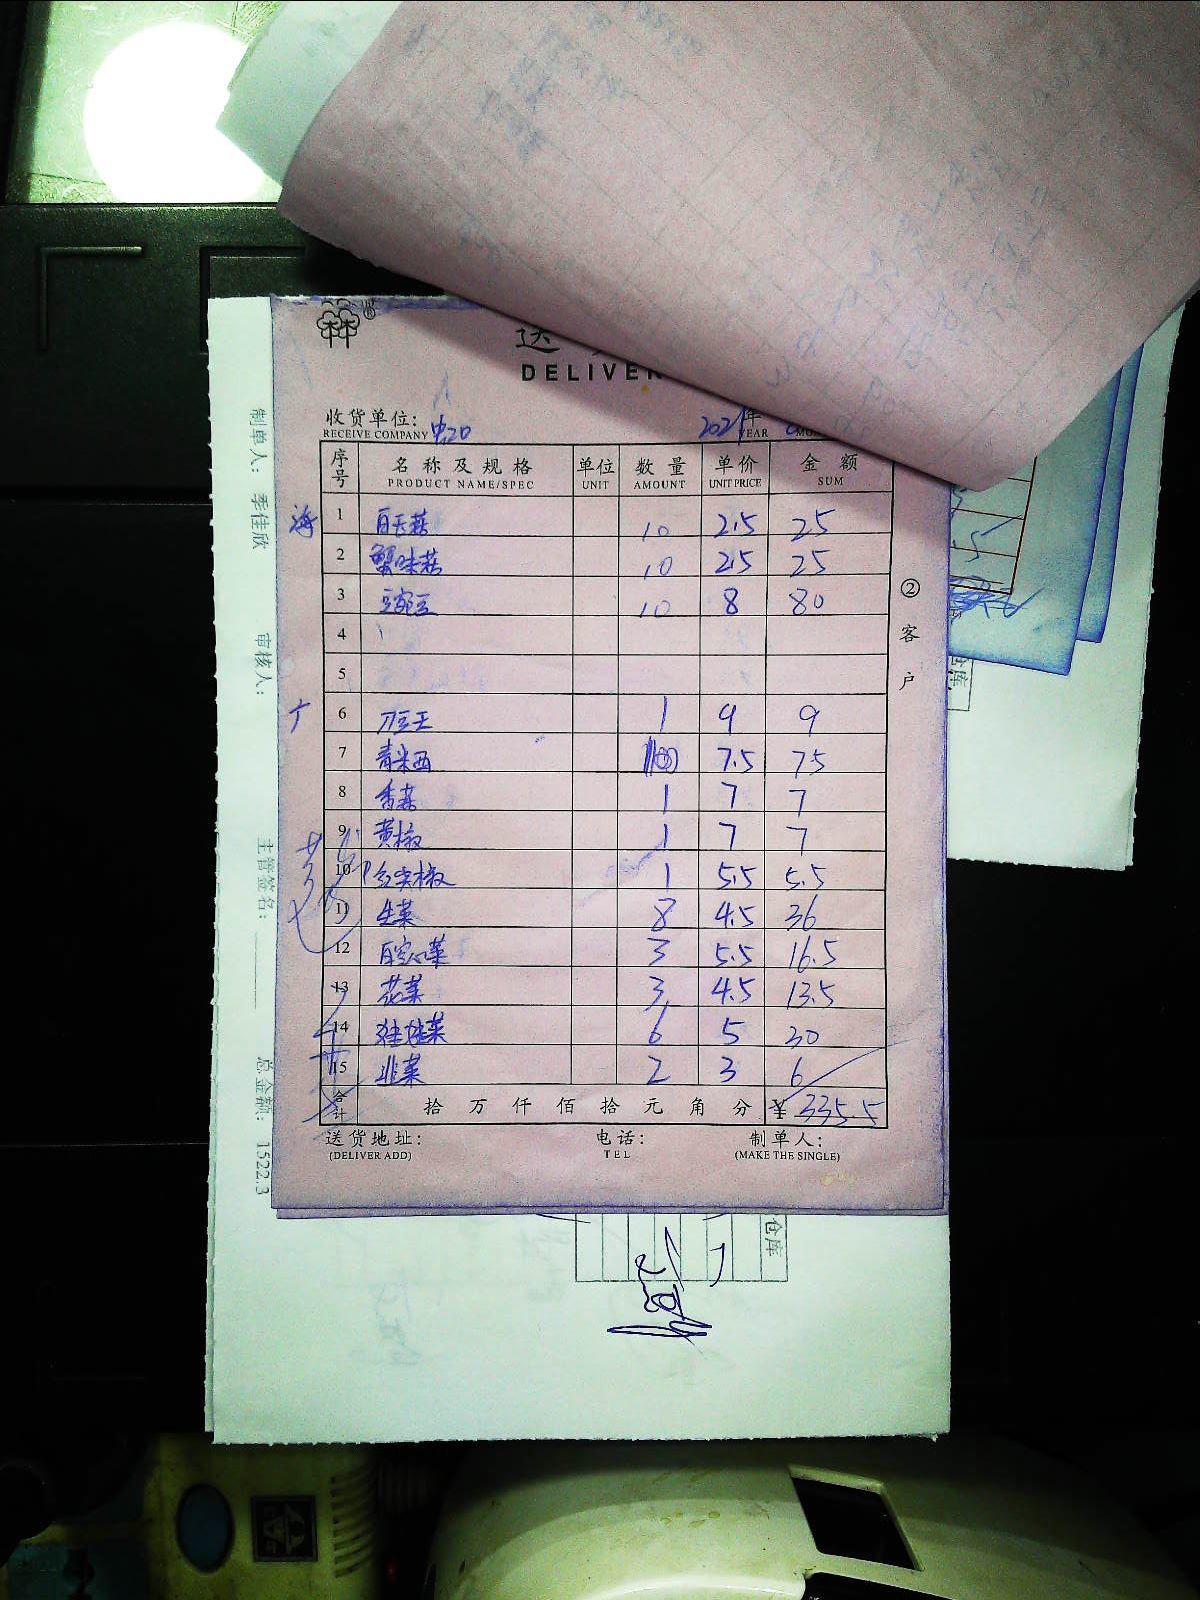 送
DELIVER
收货单位: 中20
RECEIVE COMPANY
2021年
YEAR
序号 名称及规格 单位 数量 单价 金额
PRODUCT NAME/SPEC UNIT AMOUNT UNIT PRICE SUM
海 1 白玉菇 10 2.5 25
2 蟹味菇 10 2.5 25
3 豌豆 10 8 80
4
5
广 6 刀豆王 1 9 9
7 青米西 10 7.5 75
8 香菜 1 7 7
9 黄椒 1 7 7
10 红尖椒 1 5.5 5.5
11 生菜 8 4.5 36
12 白空心菜 3 5.5 16.5
13 花菜 3 4.5 13.5
14 娃娃菜 6 5 30
15 韭菜 2 3 6
合计 拾万仟佰拾元角分 ¥ 335.5
送货地址: 电话: 制单人:
(DELIVER ADD) TEL (MAKE THE SINGLE)
②客户
制单人: 季佳欣 审核人: 主管签名: 总金额: 1522.3
仓库